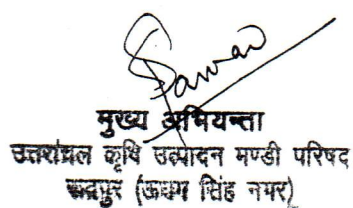 मुख्य अभियन्ता
उत्तरांचल कृषि उत्पादन मण्डी परिषद
रूद्रपुर (ऊधम सिंह नगर)